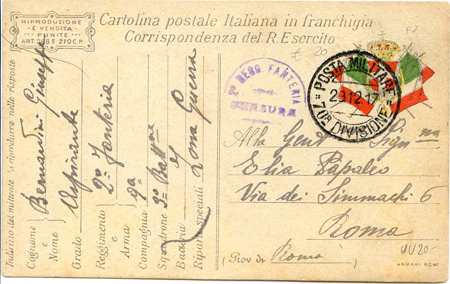 RIPRODUZIONE
E VENDITA
PUNITE
ART. 268 E 270 C.P.
Cartolina postale Italiana in franchigia
Corrispondenza del R. Esercito
€ 20
2º REGG. FANTERIA
CENSURA
POSTA MILITARE
29.12.17
70ª DIVISIONE
Indirizzo del mittente da riprodurre nelle risposte
Cognome e Nome Bernardini Giuseppe
Grado Aspirante
Reggimento o Arma 2º Fanteria
Compagnia 9ª 3º Battne
Squadrone
Batteria
Riparti speciali Zona Guerra
Alla Gent Sigma
Elia Papaleo
Via dei Simmachi 6
Roma
(Prov di Roma)
UU20-
ARMANI ROMA